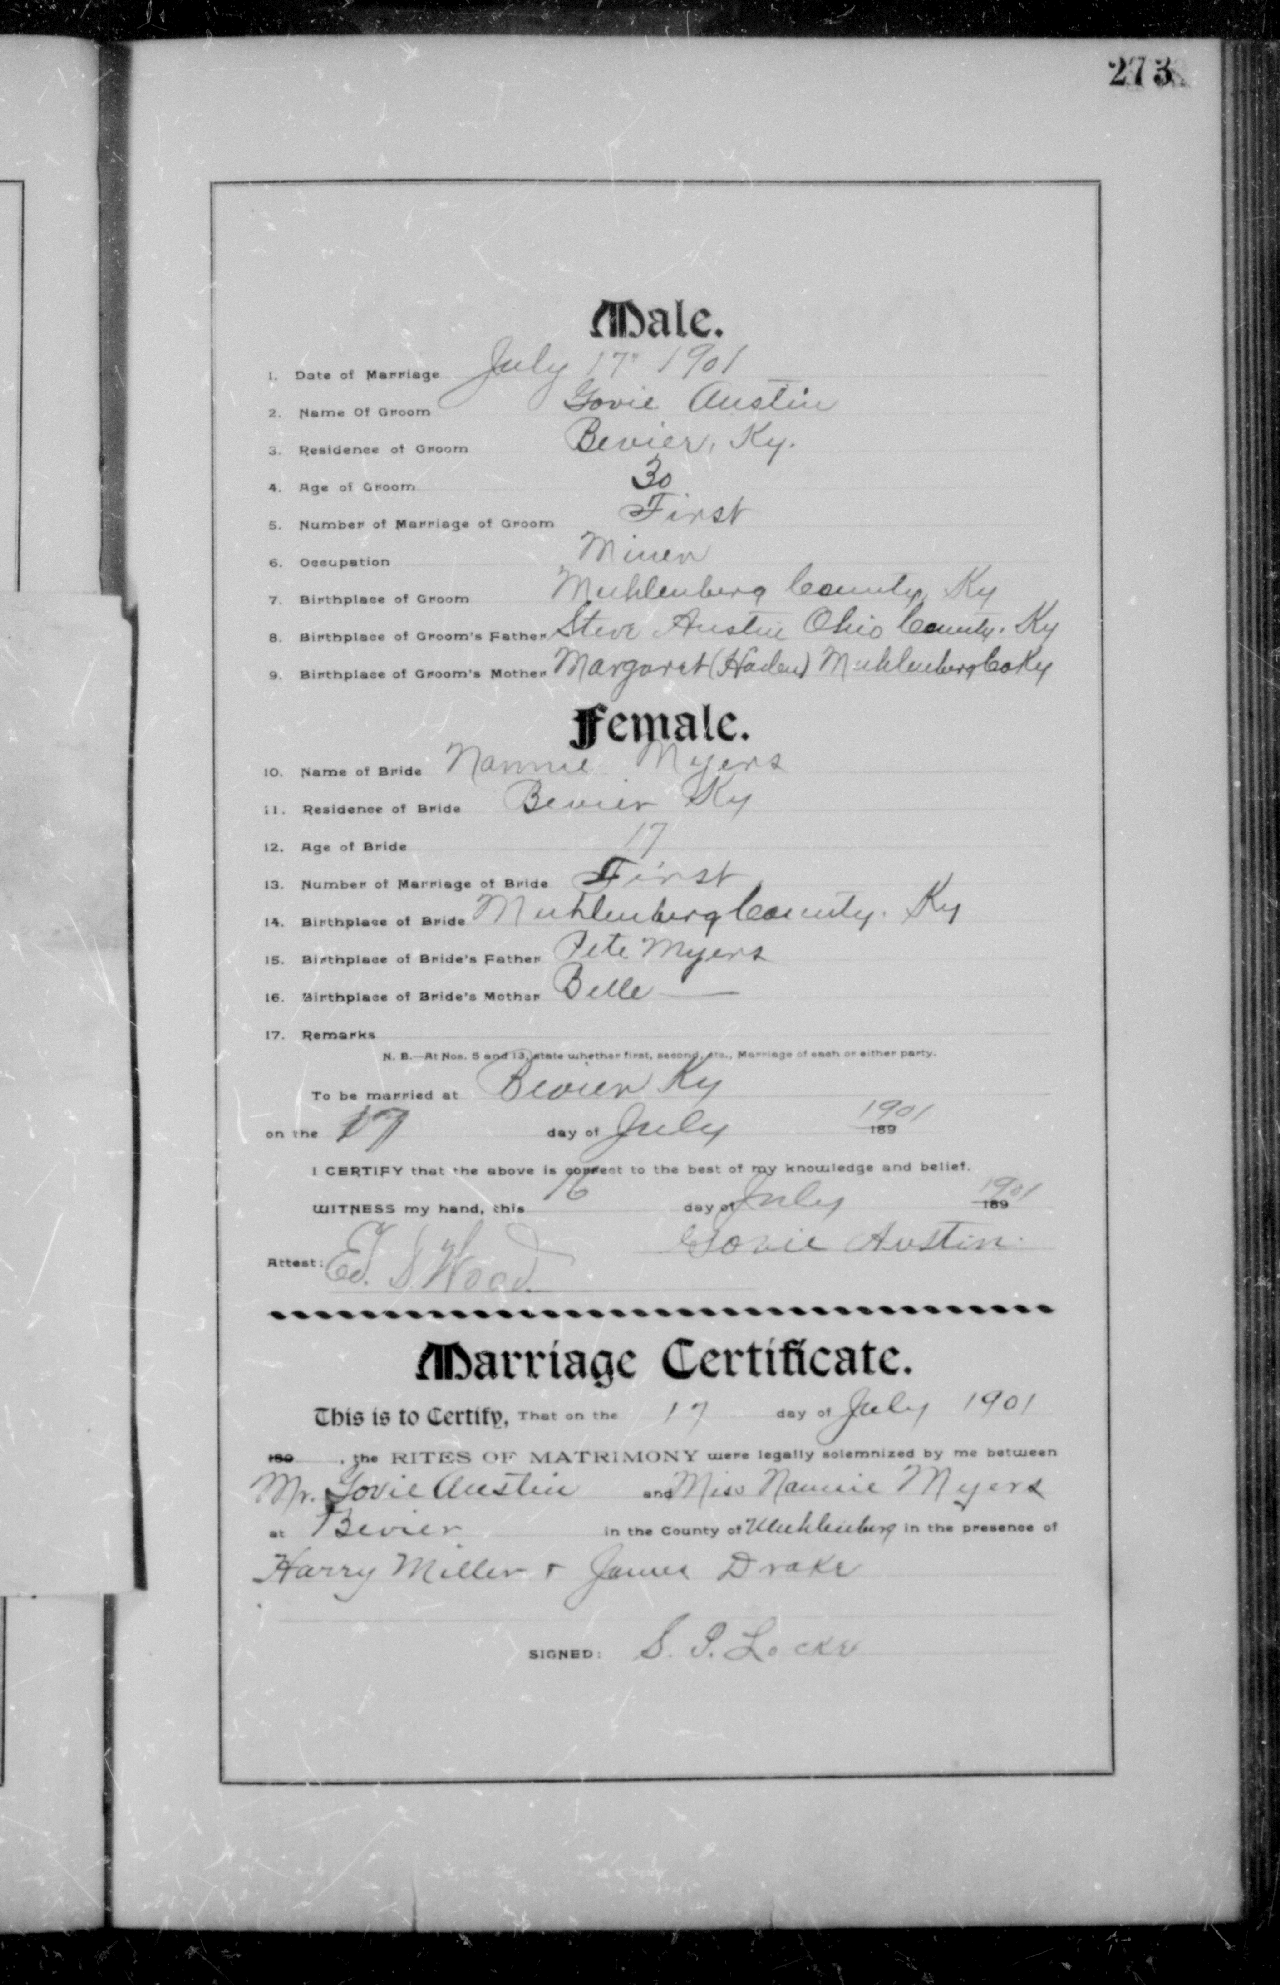 273
Male.
1. Date of Marriage July 17" 1901
2. Name Of Groom Govie Austin
3. Residence of Groom Bevier, Ky.
4. Age of Groom 30
5. Number of Marriage of Groom First
6. Occupation Miner
7. Birthplace of Groom Muhlenberg County, Ky
8. Birthplace of Groom's Father Steve Austin Ohio County. Ky
9. Birthplace of Groom's Mother Margaret (Haden) Muhlenberg Co Ky
Female.
10. Name of Bride Nannie Myers
11. Residence of Bride Bevier Ky
12. Age of Bride 17
13. Number of Marriage of Bride First
14. Birthplace of Bride Muhlenberg County. Ky
15. Birthplace of Bride's Father Pete Myers
16. Birthplace of Bride's Mother Belle —
17. Remarks
N. B.—At Nos. 5 and 13, state whether first, second, etc., Marriage of each or either party.
To be married at Bevier Ky
on the 17 day of July 189 1901
I CERTIFY that the above is correct to the best of my knowledge and belief.
WITNESS my hand, this 16 day of July 189 1901
Govie Austin.
Attest: Ed. S. Wood
Marriage Certificate.
This is to Certify, That on the 17 day of July 1901
189 , the RITES OF MATRIMONY were legally solemnized by me between
Mr. Govie Austin and Miss Nannie Myers
at Bevier in the County of Muhlenberg in the presence of
Harry Miller + James Drake
SIGNED: S. P. Locke